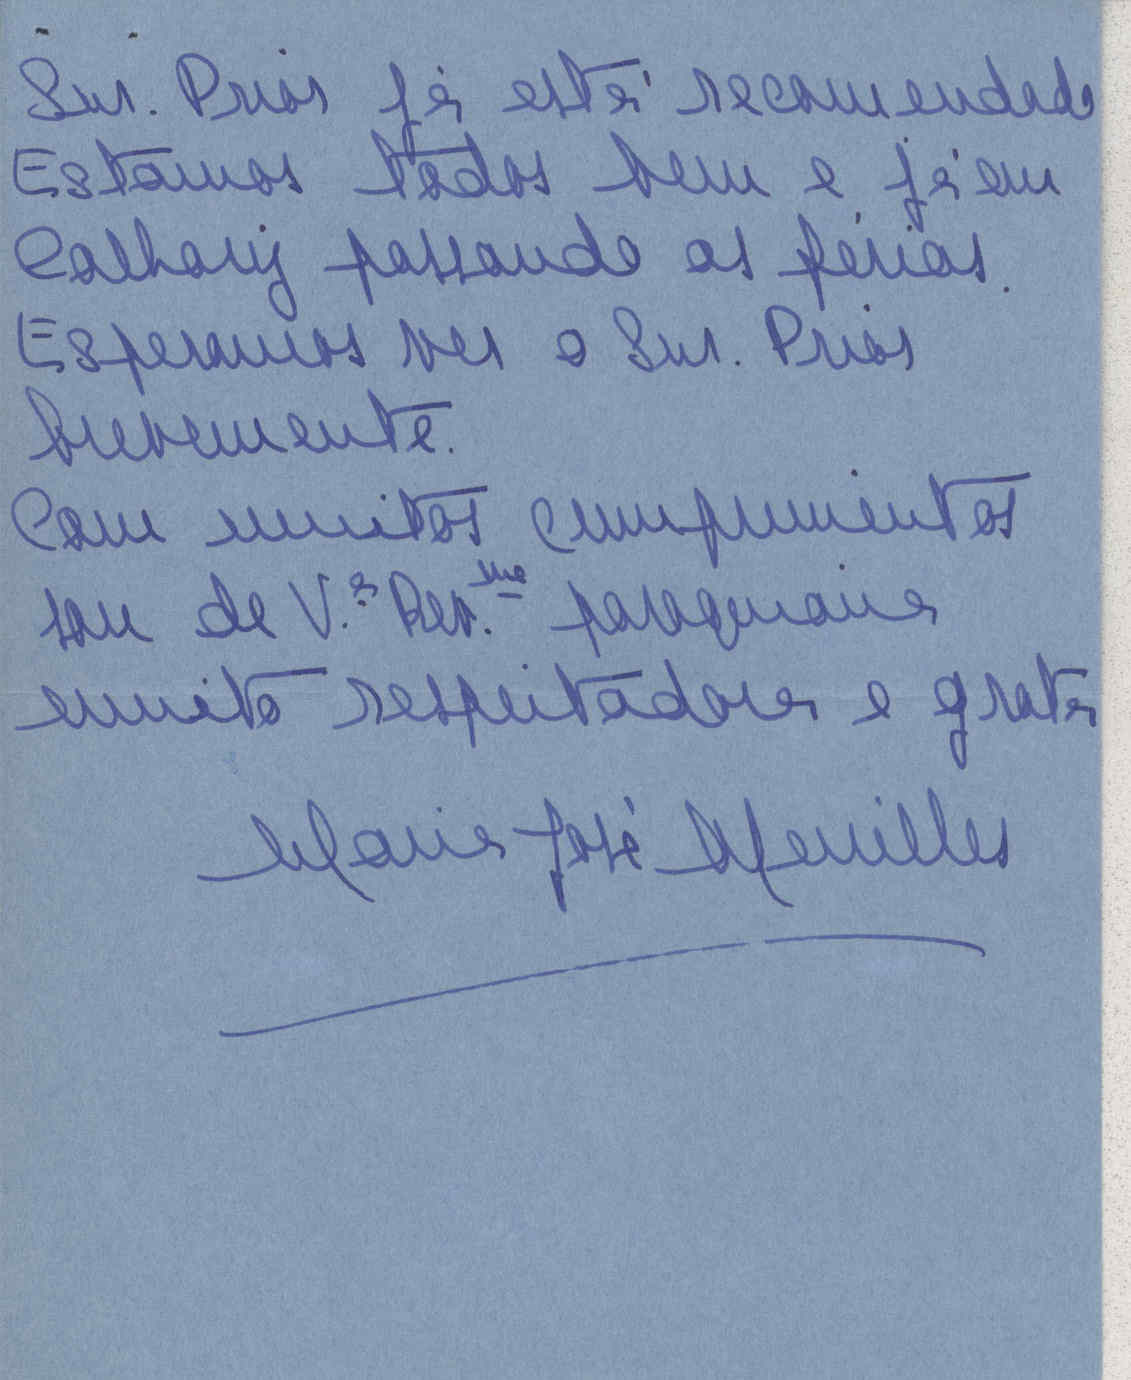 Snr. Prior já está recomendado
Estamos todos bem e já em
Calhariz passando as férias.
Esperamos ver o Snr. Prior
brevemente.
Com muitos cumprimentos
sou de V.ª Rev.ma paroquiana
muito respeitadora e grata
Maria José